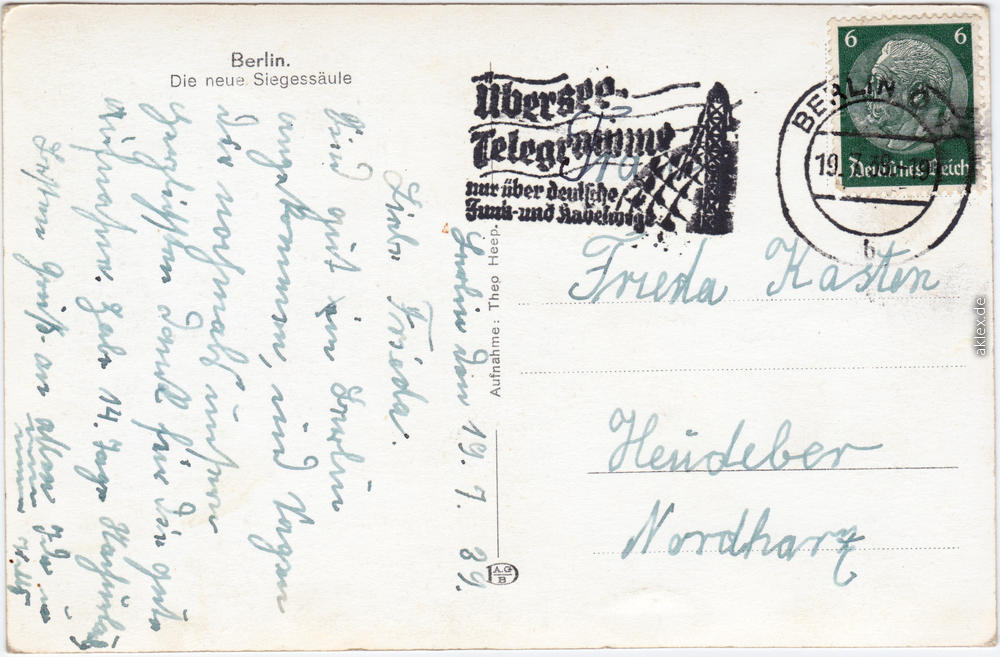 Berlin.
Die neue Siegessäule
Berlin den 19. 7. 39.
Liebe Frieda.
Sind gut in Berlin
angekommen, und sagen
Dir nochmals unsern
herzlichsten Dank für die gute
Aufnahme. Habe 14. Tage
Besten Gruß an allen
Aufnahme: Theo Heep.
A.G
B
Übersee-
Telegramme
nur über deutsche
Funk- und Kabelwege
BERLIN O
19.
b
6 6
Deutsches Reich
Frl.
Frieda Kasten
Heudeber
Nordharz
aklex.de